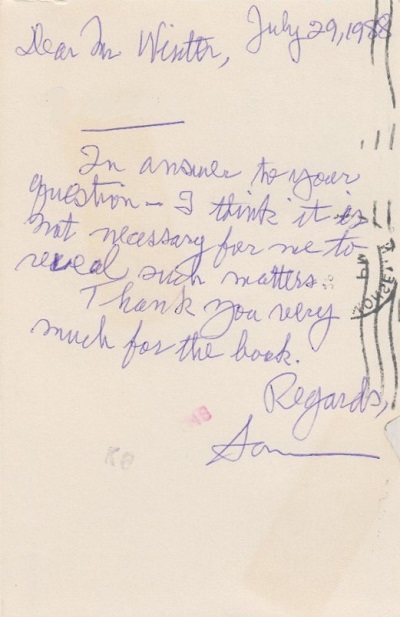 July 29, 1988
Dear Mr Winter,
In answer to your
question — I think it is
not necessary for me to
reveal such matters.
Thank you very
much for the book.
Regards,